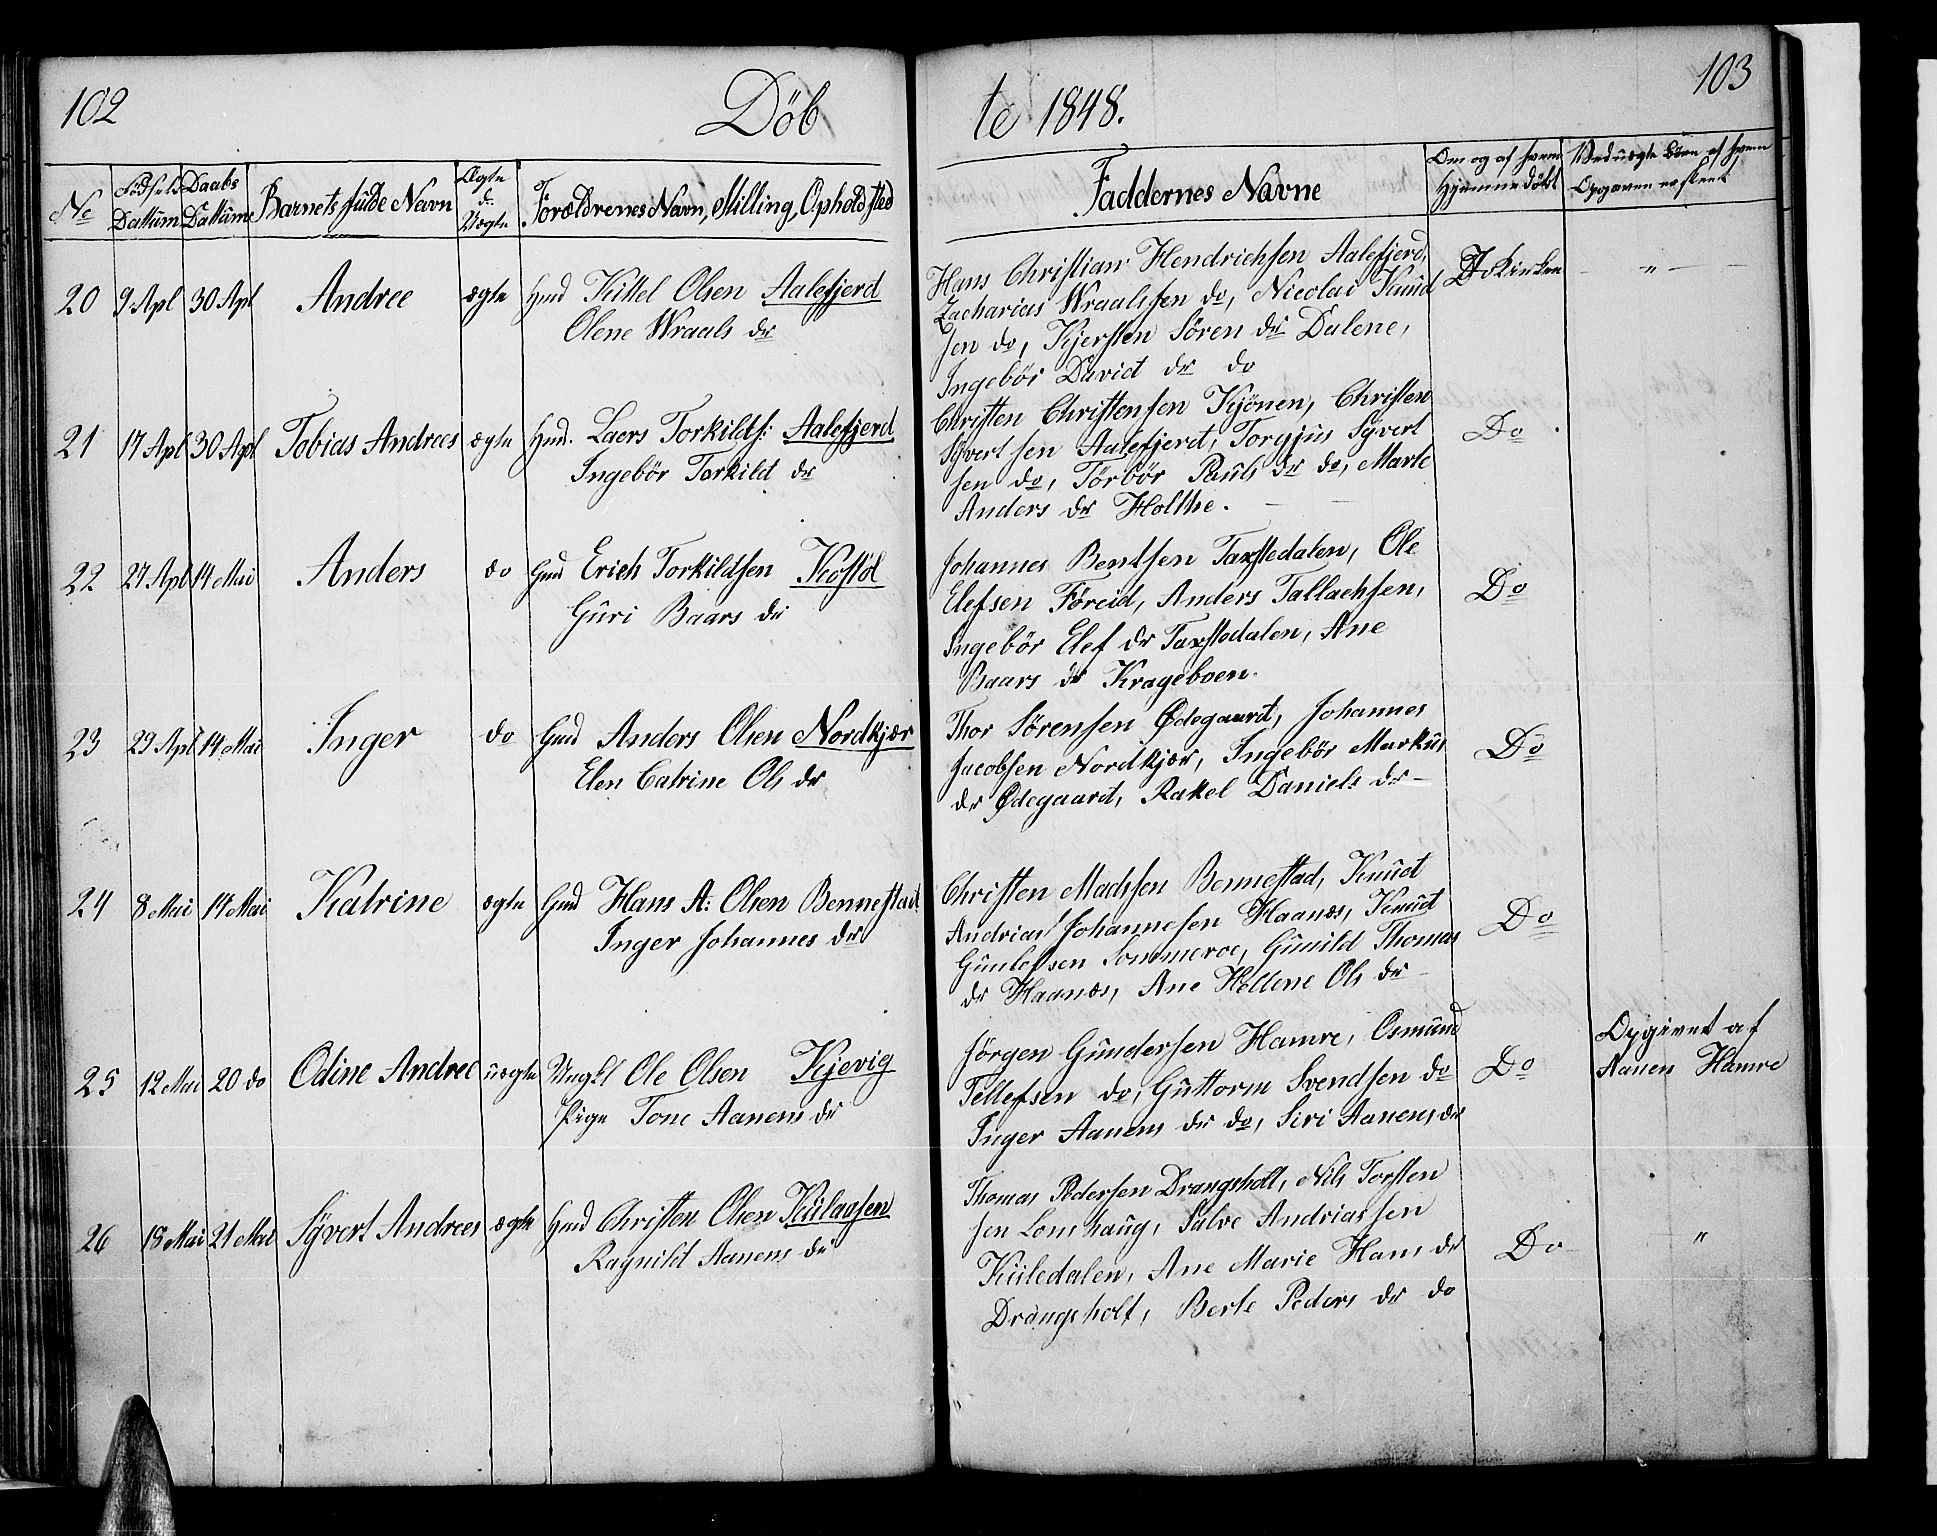 102
Döb
te 1848.
103
No
Fødsels Dattum
Daabs Dattum
Barnets fulde Navn
Ægte d. Uægte
Forældrenes Navn, Stilling, Opholdsted
Faddernes Navne
Om og af hvem Hjemmedøbt
Ved uægte børn af hvem Opgaven er skeet
20 9 Apl 30 Apl Andree ægte Hmd Kittel Olsen Aalefjerd
Olene Wraals dr
Hans Christian Hendrichsen Aalefjerd,
Zacharias Wraalssen do, Nicolai Knud
sen do, Kjersten Sören dr Dalene,
Ingebör David dr do
I Kirken
"
21 17 Apl 30 Apl Tobias Andrees ægte Hmd. Laers Torkilds: Aalefjerd
Ingebör Torkild dr
Christen Christensen Kjönen, Christen
Syvertsen Aalefjerd, Torgjus Syvert
sen do, Törbör Pauls dr do, Marte
Anders dr Holthe.
Do
22 27 Apl 14 Mai Anders do Gmd Erich Torkildsen Kostöl
Guri Baars dr
Johannes Bentsen Taxstedalen, Ole
Elefsen Föreid, Anders Tallachsen,
Ingebör Elef dr Taxstedalen, Ane
Baars dr Krageboen.
Do
23 29 Apl 14 Mai Inger do Gmd Anders Olsen Nordkjær
Elen Catrine Ols dr
Thor Sörensen Ødegaard, Johannes
Jacobsen Nordkjær, Ingebör Markus
dr Ødegaard, Rakel Daniels dr
Do
24 8 Mai 14 Mai Katrine ægte Gmd Hans A: Olsen Bennestad
Inger Johannes dr
Christen Madssen Bennestad, Knud
Andrias Johannesen Haanæs, Knud
Gunlefsen Sommeroe, Gunild Thomas
dr Haanæs, Ane Hellene Ols dr
Do
25 12 Mai 20 do Odine Andree uægte Ungkl Ole Olsen Kjevig
Pige Tone Aanens dr
Jörgen Gundersen Hamre, Osmund
Tellefsen do, Guttorm Svendsen do
Inger Aanens dr do, Siri Aanens dr
Do
Opgivet af
Aanen Hamre
26 18 Mai 21 Mai Syvert Andrees ægte Hmd Christen Olsen Kulaasen
Ragnild Aanens dr
Thomas Pedersen Drangsholt, Nils Torsten
sen Lomhaug, Salve Andriassen
Kuledalen, Ane Marie Hans dr
Drangsholt, Berte Peders dr do
Do
"